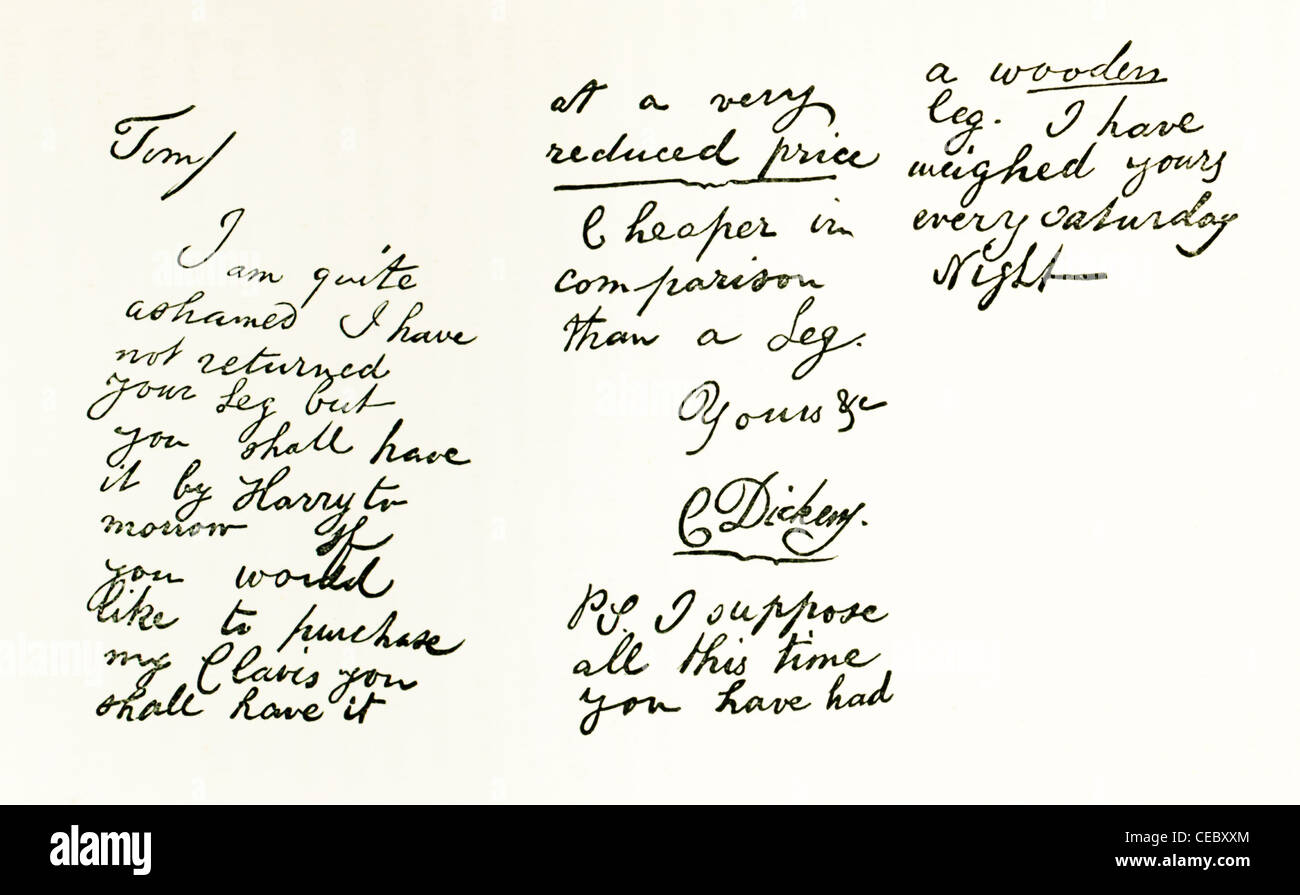 Tom/
I am quite
ashamed I have
not returned
your Leg but
you shall have
it by Harry to
morrow If
you would
like to purchase
my Clavis you
shall have it
at a very
reduced price
Cheaper in
comparison
than a Leg.
Yours &c
C Dickens.
PS. I suppose
all this time
you have had
a wooden
leg. I have
weighed yours
every Saturday
Night—
alamy
Image ID: CEBXXM
www.alamy.com